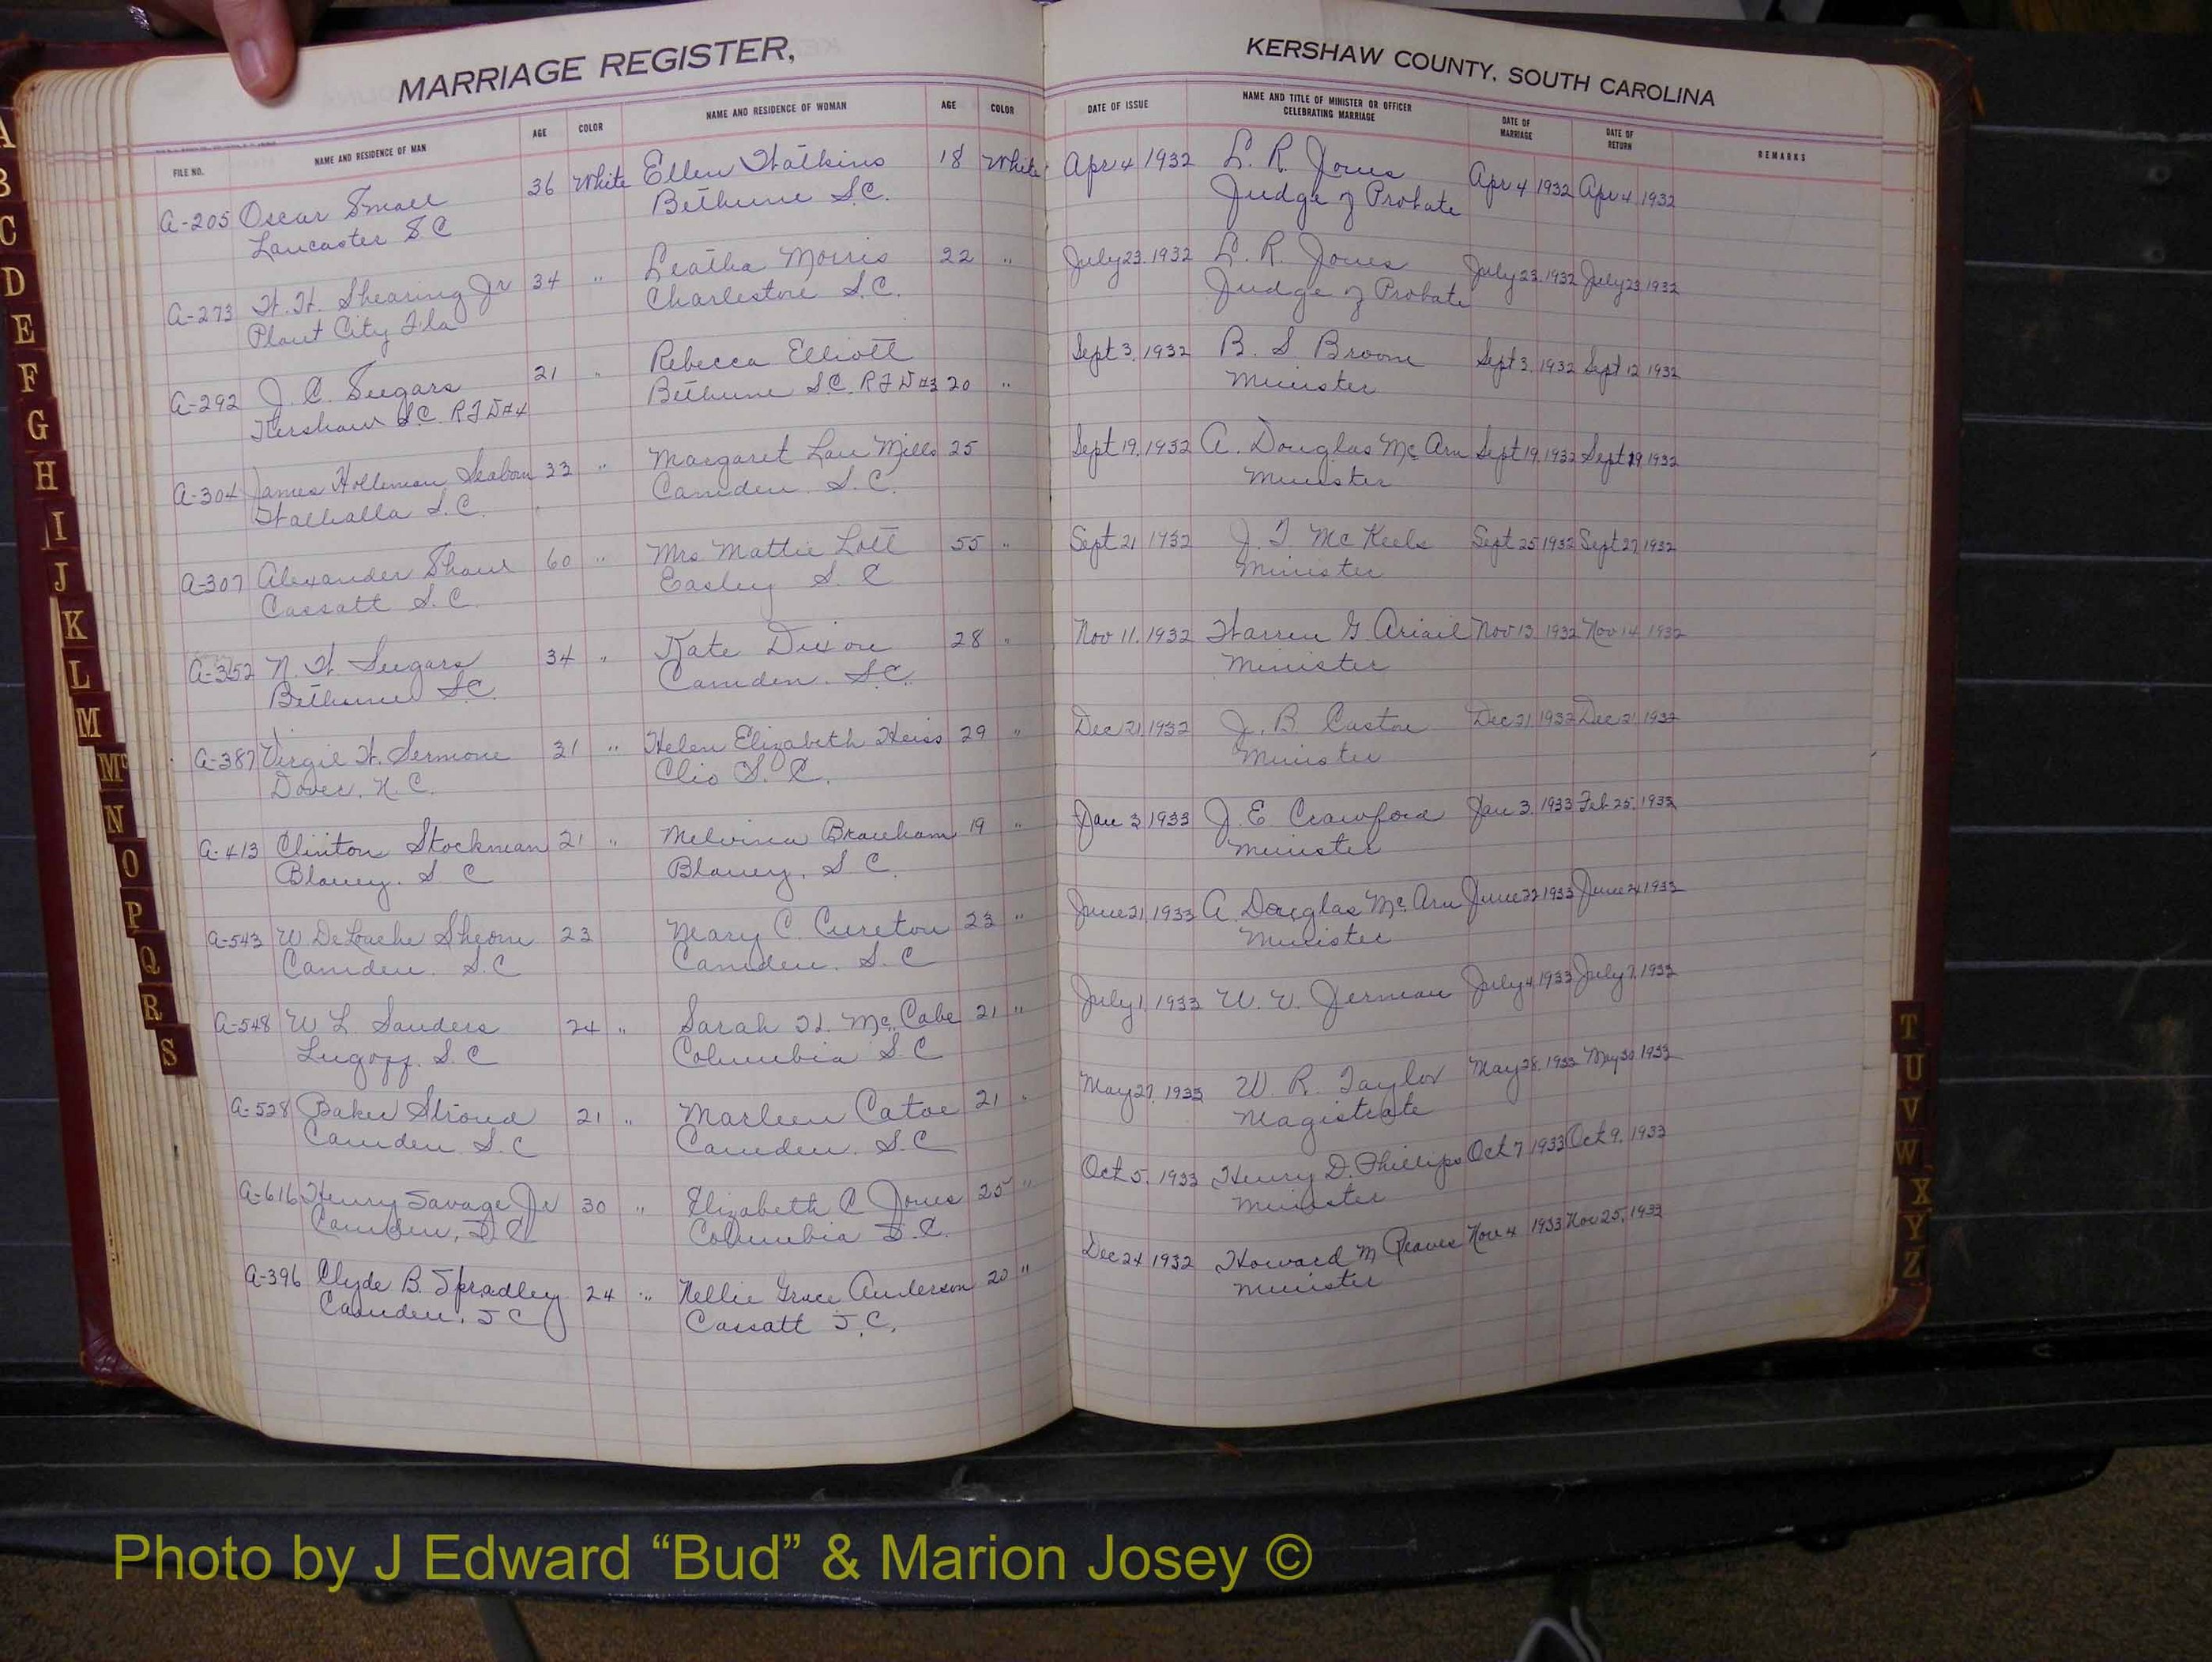 MARRIAGE REGISTER,
KERSHAW COUNTY, SOUTH CAROLINA
FILE NO. NAME AND RESIDENCE OF MAN AGE COLOR NAME AND RESIDENCE OF WOMAN AGE COLOR DATE OF ISSUE NAME AND TITLE OF MINISTER OR OFFICER CELEBRATING MARRIAGE DATE OF MARRIAGE DATE OF RETURN REMARKS
A-205 Oscar Small 36 White Ellen Watkins 18 White Apr 4 1932 L. R. Jones Apr 4 1932 Apr 4 1932
Lancaster S C Bethune S.C. Judge of Probate
A-273 W. W. Shearing Jr 34 " Leatha Morris 22 " July 23. 1932 L. R. Jones July 23. 1932 July 23 1932
Plant City Fla Charleston S.C. Judge of Probate
A-292 J. C. Seegars 21 " Rebecca Elliott Sept 3. 1932 B. S Broom Sept 3. 1932 Sept 12 1932
Kershaw S.C. R F D #4 Bethune S.C. R F D #3 20 " Minister
A-304 James Holleman Seaborn 33 " Margaret Lau Mills 25 Sept 19, 1932 A. Douglas McArn Sept 19, 1932 Sept 19 1932
Walhalla S.C. Camden S.C. Minister
A-307 Alexander Shaw 60 " Mrs Mattie Lott 55 " Sept 21 1932 J. T McKeels Sept 25 1932 Sept 27 1932
Cassatt S.C. Easley S. C Minister
A-352 N. W. Seegars 34 " Kate Dixon 28 " Nov 11. 1932 Warren G. Ariail Nov 13 1932 Nov 14 1932
Bethune S.C. Camden. S.C. Minister
A-387 Virgil W. Sermons 31 " Helen Elizabeth Heiss 29 " Dec 21, 1932 J. B. Caston Dec 21, 1932 Dec 21 1932
Dover, N.C. Clio S. C. Minister
A-413 Clinton Stockman 21 " Melvina Branham 19 " Jan 3 1933 J. E Crawford Jan 3. 1933 Feb 25. 1933
Blaney. S C Blaney. S C. Minister
A-543 W DeLoache Sheorn 23 Mary C. Cureton 23 " June 21, 1933 A. Douglas McArn June 22 1933 June 24 1933
Camden. S.C Camden. S.C Minister
A-548 W L. Sanders 24 " Sarah H. McCabe 21 " July 1, 1933 W. V. Jerman July 4 1933 July 7, 1933
Lugoff. S.C Columbia S C
A-528 Baker Stroud 21 " Marleen Catoe 21 " May 27. 1933 W R. Taylor May 28. 1933 May 30 1933
Camden S.C Camden. S.C Magistrate
A-616 Henry Savage Jr 30 " Elizabeth C Jones 25 " Oct 5. 1933 Henry D. Phillips Oct 7 1933 Oct 9. 1933
Camden, S C Columbia S.C. Minister
A-396 Clyde B. Spradley 24 " Nellie Grace Anderson 20 " Dec 24 1932 Howard M Reaves Nov 4 1933 Nov 25, 1933
Camden. S C Cassatt S.C. Minister
A
B
C
D
E
F
G
H
I
J
K
L
M
Mc
N
O
P
Q
R
S
T
U
V
W
X
Y
Z
Photo by J Edward “Bud” & Marion Josey ©